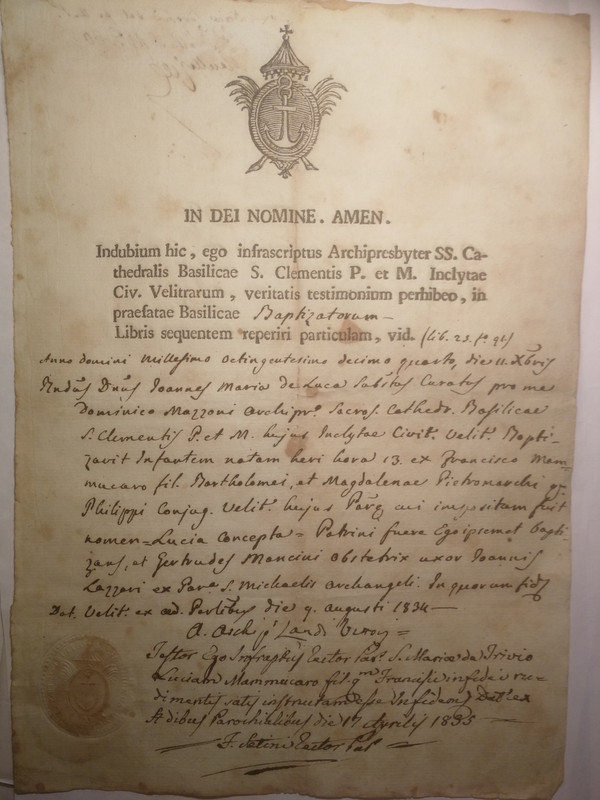 IN DEI NOMINE. AMEN.
Indubium hic, ego infrascriptus Archipresbyter SS. Ca-
thedralis Basilicae S. Clementis P. et M. Inclytae
Civ. Velitrarum, veritatis testimonium perhibeo, in
praefatae Basilicae Baptizatorum —
Libris sequentem reperiri particulam, vid. (lib. 23. f.º 91)
Anno domini millesimo octingentesimo decimo quarto, die 11. Xbris
Rndus Dnus Joannes Maria de Luca Substus Curatus pro me
Dominico Mazzoni Archipr. Sacros. Cathedr. Basilicae
S. Clementis P. et M. hujus Inclytae Civit. Velit. Bapti-
zavit Infantem natam heri hora 13. ex Francisco Mam-
mucaro fil. Bartholomei, et Magdalenae Pietromarchi qm
Philippi Conjug. Velit. hujus Par. cui impositum fuit
nomen = Lucia Concepta = Patrini fuere Ego ipsemet bapti-
zans, et Gertrudes Mancini obstetrix uxor Joannis
Lazzari ex Para S. Michaelis Archangeli. In quorum fidem
Dat. Velit. ex aed. die 9. augusti 1834 —
A. Landi
Testor Ego Infraptus Rector Par. S. Mariae de Trivio
Luciam Mammucaro fil. qm Francisci in fidei ru-
dimentis satis instructam esse In fidem Dat. ex
Aedibus Parochialibus die 17 Aprilis 1835 —
Rector Par.